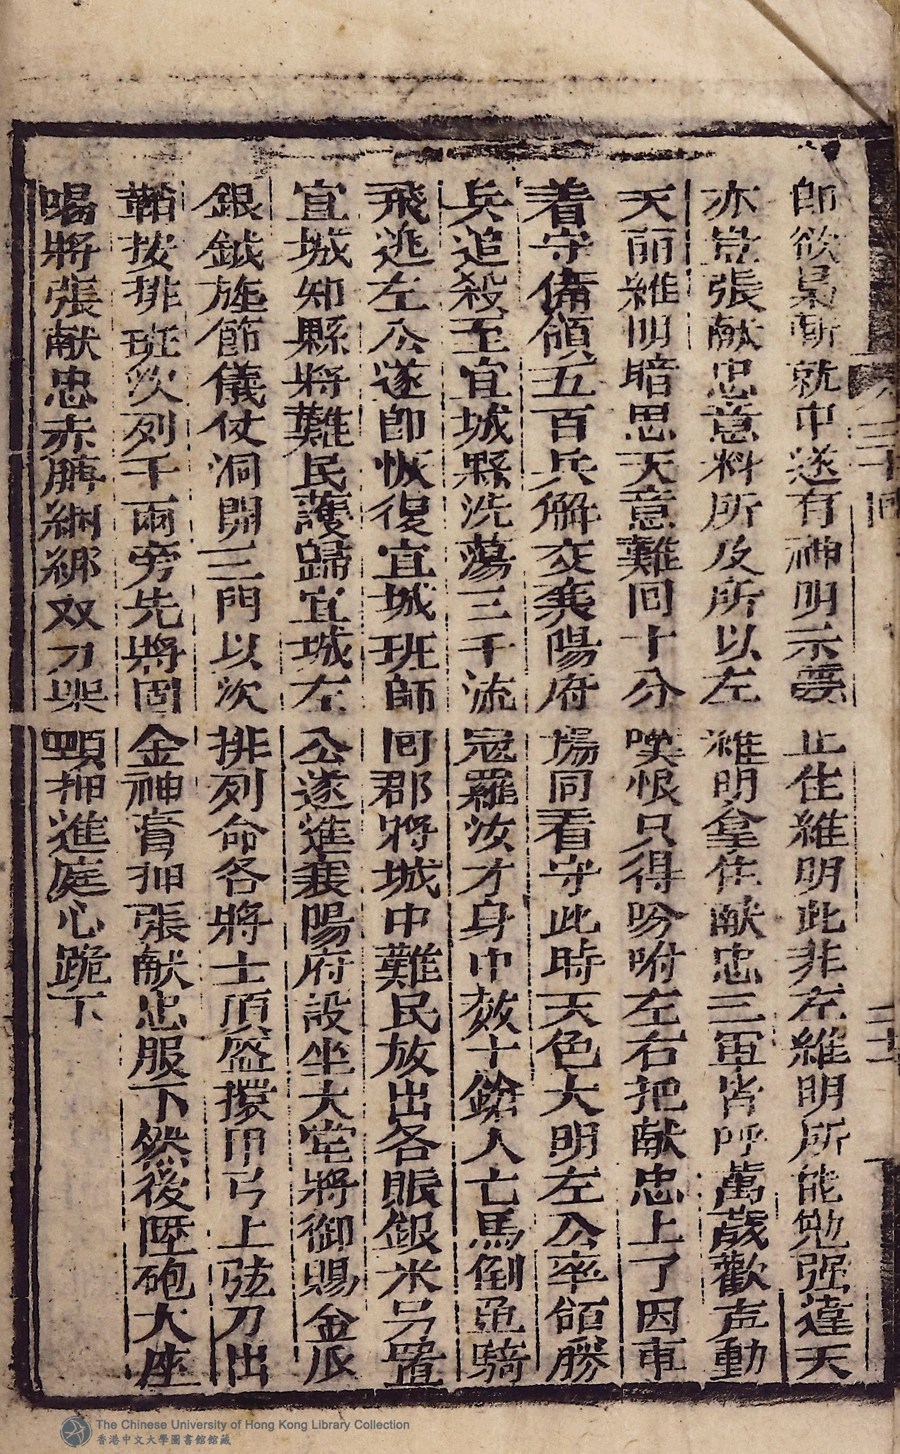 即欲梟斬就中遂有神明示靈止住維明此非左維明所能勉强違天
亦豈張献忠意料所及所以左維明拿住献忠三軍皆呼萬歲歡声動
天而維明暗思天意難回十分嘆恨只得吩咐左右把献忠上了囚車
着守備領五百兵解交襄陽府塲同看守此時天色大明左公率領勝
兵追殺至宜城縣洗蕩三千流冦羅汝才身巾数十鎗人亡馬倒匹騎
飛逃左公遂即恢復宜城班師囘郡將城中難民放出各賑銀米另置
宜城知縣將難民護歸宜城左公遂進襄陽府設坐大堂將御賜金瓜
銀鉞旌節儀仗洞開三門以次排列命各將士頂盔擐甲弓上弦刀出
鞘按排班次列于兩旁先將固金神膏抻張献忠服下然後陞砲大座
喝將張献忠赤膊綑綁双刀架頸押進庭心跪下
三十回
三十
The Chinese University of Hong Kong Library Collection
香港中文大學圖書館館藏